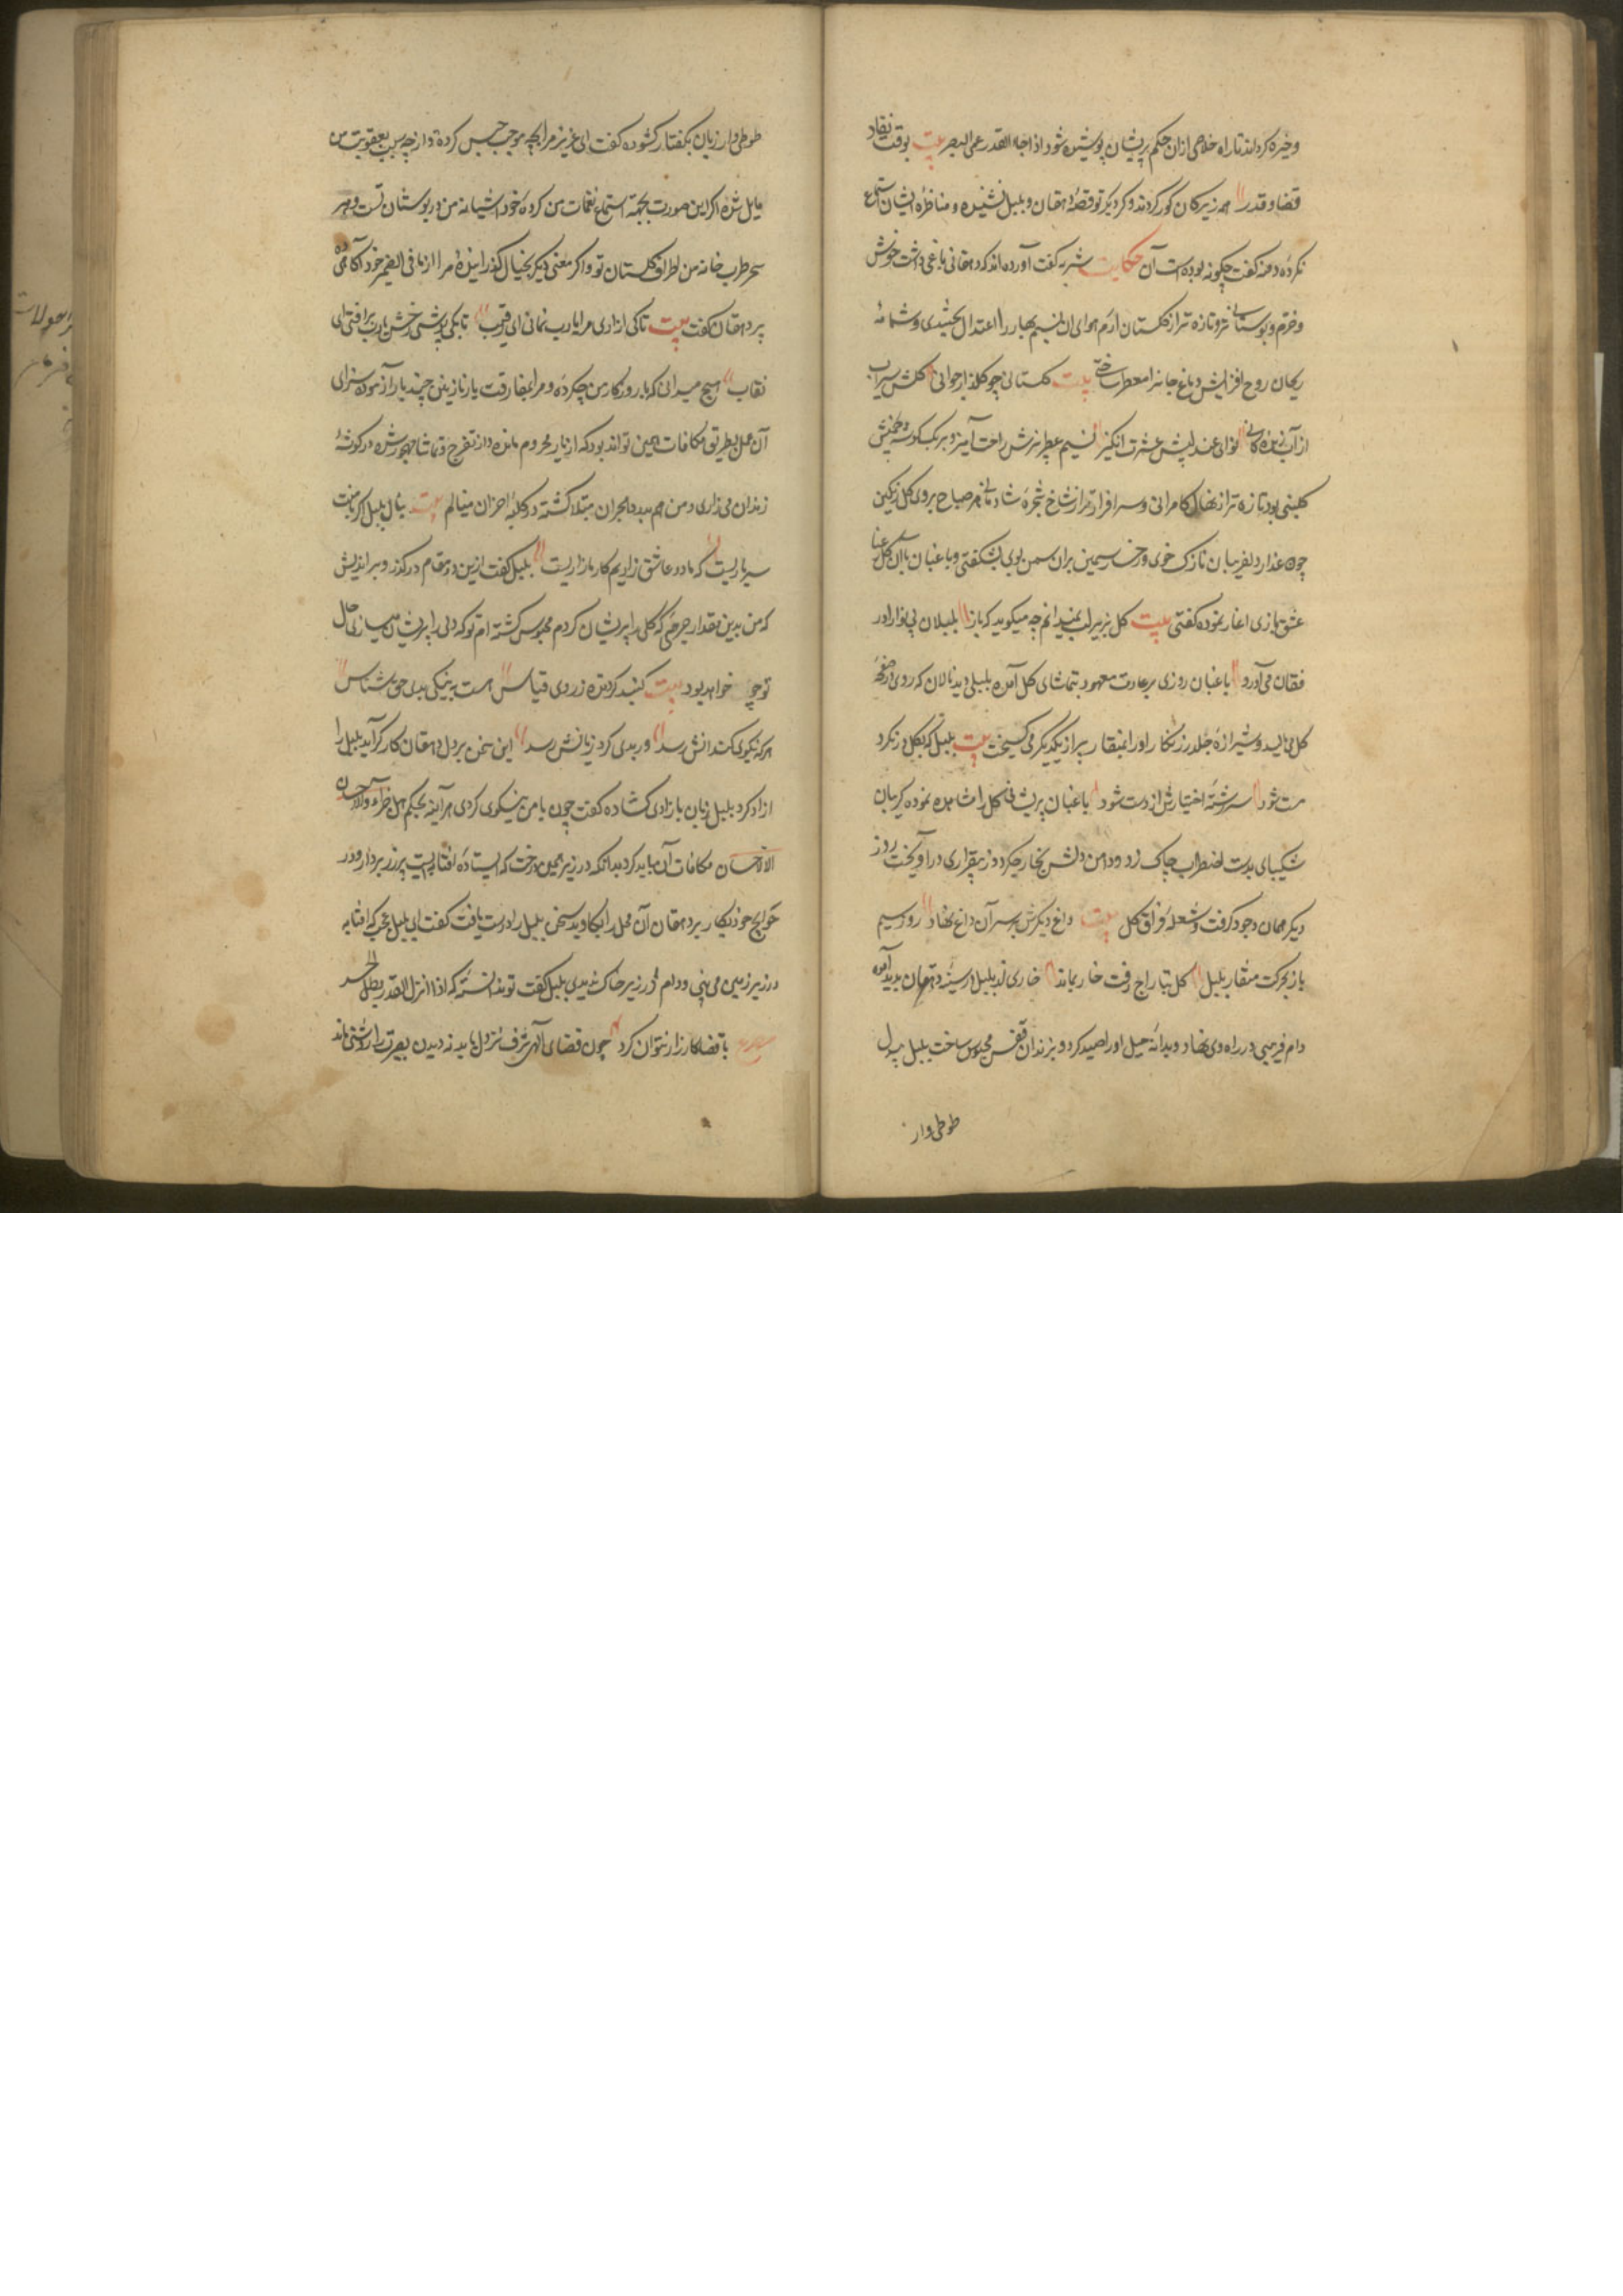 وخیره کرداند تا راه خلاصی ازان حکم بریشان پوشیده شود اذا جاء القدر عمی البصر بیت بوقت نفاد
قضا و قدر همه زیرکان کور گردند و کر دیگر تو قصهٔ دهقان و بلبل نشنیدهٔ و مناظرهٔ ایشان استماع
نکردهٔ دمنه گفت چگونه بوده است آن حکایت شنزبه گفت آورده اند که دهقانی باغی داشت خوش
و خرم و بوستانی تر و تازه تر از گلستان ارم هوای ان نسیم بهار را اعتدال بخشیدی و شمامهٔ
ریحان روح افزایش دماغ جانرا معطر ساختی بیت گلستانی چو گلزار جوانی گلش سیراب
از آب زندگانی نوای عندلیبش عشرت انگیز نسیم عطر بیزش راحت آمیز و بر یک گوشهٔ چمنش
گلبنی بود تازه تر از نهال کامرانی و سرافرازتر از شاخ شجرهٔ شادمانی هر صباح بر روی گل رنگین
چون عذار دلفریبان نازک خوی و رخ سیمین بران سمن بوی بشکفتی و باغبان باان گل رعنا
عشق بازی اغاز نموده گفتی بیت گل بزیر لب نمیدانم چه میگوید که باز بلبلان بی نوا را در
فغان می آورد باغبان روزی بر عادت معهود بتماشای گل آمده بلبلی دید نالان که روی در صفحهٔ
گل می مالید و شیرازهٔ جلد زرنگار اورا بمنقار تیز از یکدیگر می گسیخت بیت بلبل که بگل در نگرد
مست شود سر رشتهٔ اختیارش از دست شود باغبان پریشانی گل را مشاهده نموده گریبان
شکیبای بدست اضطراب چاک زد و دامن دلش بخار جگر دوز بیقراری در آویخت روز
دیگر همان وجود گرفت و شعلهٔ فراق گل بیت داغ دیگرش بر سر آن داغ نهاد روز سیم
باز بحرکت منقار بلبل گل بتاراج رفت خار بماند خاری زان بلبل در سینهٔ دهقان پدید آمده
دام فریبی در راه وی نهاد و بدانهٔ حیل اورا صید کرد و بزندان قفس محبوس ساخت بلبل بیدل
طوطی وار
طوطی وار زبان بگفتار گشوده گفت ای عزیز مرا بچه موجب حبس کردهٔ و از چه سبب بعقوبت من
مایل شدهٔ اگر این صورت بجهة استماع نغمات من کردهٔ خود اشیانه من در بوستان تست و هر
سحر طربخانه من اطراف گلستان تو و اگر معنی دیگر بخیال گذرانیدهٔ مرا از ما فی الضمیر خود آگاهی ده
پیر دهقان گفت بیت تا کی ازاری مرا یا رب نمانی ای رقیب تا بکی پوشی رخش یا رب برافتی ای
نقاب هیچ میدانی که با روزگار من چکردهٔ و مرا بمفارقت یار نازنین چند بار آزموده سزای
آن عمل بطریق مکافات همین تواند بود که از یار محروم مانده و از تفرج و تماشا مهجور شده در گوشهٔ
زندان می زاری و من هم بدرد هجران مبتلا گشته در کلبهٔ احزان مینالم بیت بنال بلبل اگر با منت
سر یاریست که ما دو عاشق زاریم کار ما زاریست بلبل گفت ازین در مقام درگذر و براندیش
که من بدین مقدار جرمی که گلی را پریشان کردم محبوس گشته ام تو که دلی را پریشان میسازی حال
تو چو خواهد بود بیت گنبد گردنده ز روی قیاس هست به نیکی و بدی حق شناس
هر که نکوی کند انش رسد و ربدی کرد زیانش رسد این سخن بر دل دهقان کارگر آید بلبل را
ازاد کرد بلبل زبان بازادی گشاده گفت چون با من نیکوی کردی هر آینه بحکم هل جزاء الاحسان
الا الاحسان مکافات آن باید کرد بدانکه در زیر همین درخت که ایستادهٔ افتابه ایست پر زر بردار و در
حوایج خود بکار بر دهقان آن محل را بکاوید سخن بلبل را درست یافت گفت ای بلبل عجب که افتابه
در زیر زمین می بینی و دام در زیر خاک ندیدی بلبل گفت تو ندانسته که اذا انزل القدر بطل الحذر
مصراع با قضا کارزار نتوان کرد چون قضای الهی شرف نزول یابد نه دیدن بصیرت را روشنی ماند